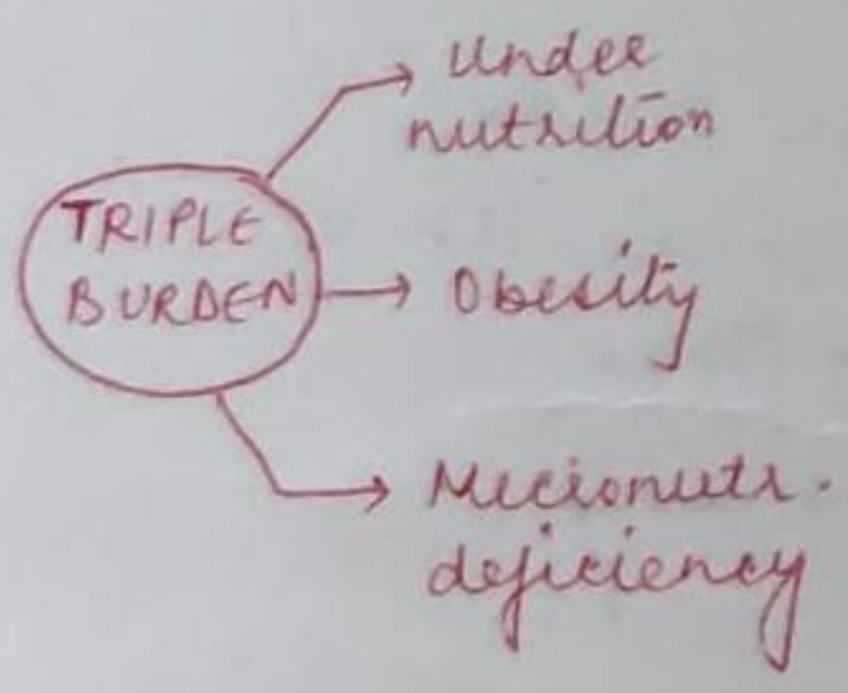 TRIPLE
BURDEN
Under
nutrition
Obesity
Micronutr.
deficiency